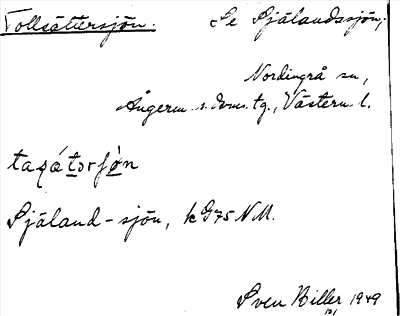 Tollsättersjön. Se Själandssjön,
Nordingrå sn,
Ångerm. s. doms. tg., Västern. l.
Själand-sjön, k G75 N.M.
Sven Hiller 1949